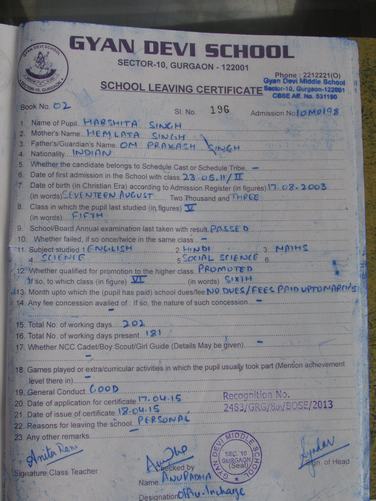 GYAN DEVI SCHOOL
SECTOR-10, GURGAON - 122001
Phone : 2212221(O)
SCHOOL LEAVING CERTIFICATE
Gyan Devi Middle School
Sector-10, Gurgaon-122001
CBSE Aff. No. 531190
Book No. 02 Sl. No. 196 Admission No.
1. Name of Pupil HARSHITA SINGH
2. Mother's Name HEMLATA SINGH
3. Father's/Guardian's Name OM PRAKASH SINGH
4. Nationality INDIAN
5. Whether the candidate belongs to Schedule Cast or Schedule Tribe -
6. Date of first admission in the School with class 23.05.11/II
7. Date of birth (in Christian Era) according to Admission Register (in figures) 17.08.2003
(in words) SEVENTEEN AUGUST Two Thousand and THREE
8. Class in which the pupil last studied (in figures) V
(in words) FIFTH
9. School/Board Annual examination last taken with result PASSED
10. Whether failed, if so once/twice in the same class -
11. Subject studied 1 ENGLISH 2. HINDI 3. MATHS
4. SCIENCE 5. SOCIAL SCIENCE 6.
12. Whether qualified for promotion to the higher class. PROMOTED
If so, to which class (in figure) VI (in words) SIXTH
13. Month upto which the (pupil has paid) school dues/fee NO DUES/FEES PAID UPTO
14. Any fee concession availed of : If so, the nature of such concession -
15. Total No. of working days 202
16. Total No. of working days present 181
17. Whether NCC Cadet/Boy Scout/Girl Guide (Details May be given) -
18. Games played or extra/curricular activities in which the pupil usually took part (Mention achievement
level there in) -
19. General Conduct GOOD
20. Date of application for certificate 17.04.15
21. Date of issue of certificate 18.04.15
22. Reasons for leaving the school PERSONAL
23. Any other remarks
Recognition No.
GYAN DEVI MIDDLE SCHOOL
SEC. 10
GURGAON
(Seal)
Signature Class Teacher
Checked by
Sign of Head
Name ANURADHA
Designation Incharge